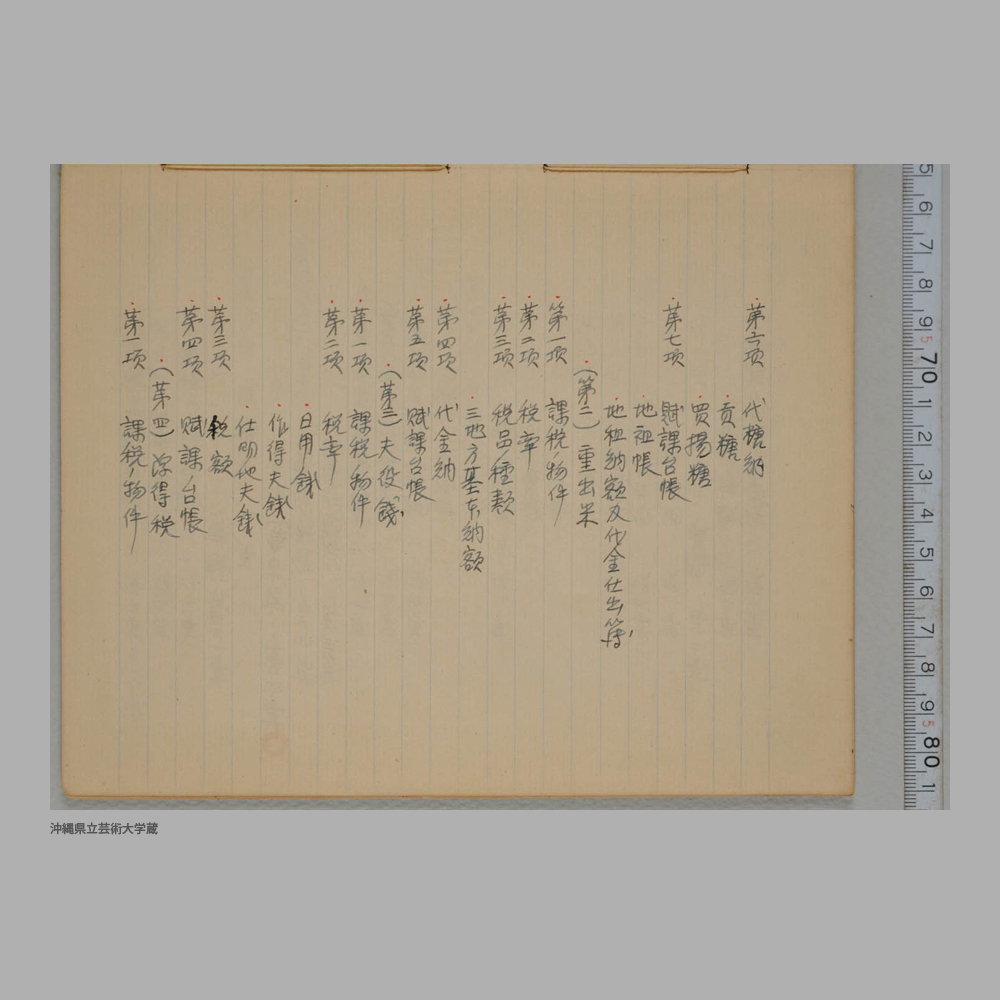 第六項 代糖納
貢糖
買揚糖
第七項 賦課台帳
地祖帳
地租納額及代金仕出簿
(第二) 重出米
第一項 課税ノ物件
第二項 税率
第三項 税品ノ種類
三地方基本納額
第四項 代金納
第五項 賦課台帳
(第三) 夫役銭
第一項 課税ノ物件
第二項 税率
日用銭
作得夫銭
仕明地夫銭
第三項 税額
第四項 賦課台帳
(第四) 浮得税
第一項 課税ノ物件
5 6 7 8 9 70 1 2 3 4 5 6 7 8 9 80 1
沖縄県立芸術大学蔵